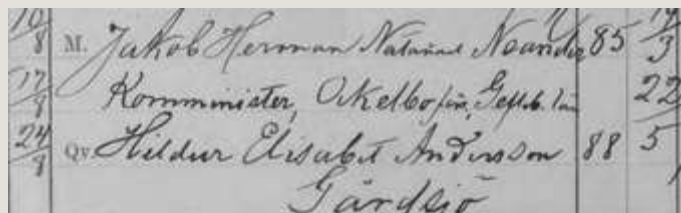 10/8 M. Jakob Herman Natanael Neander 85 14/3
17/8 Komminister, Ockelbo förs, Gefleb. län 22
24/8 Qv. Hildur Elisabet Andersson 88 5
Gårdsjö